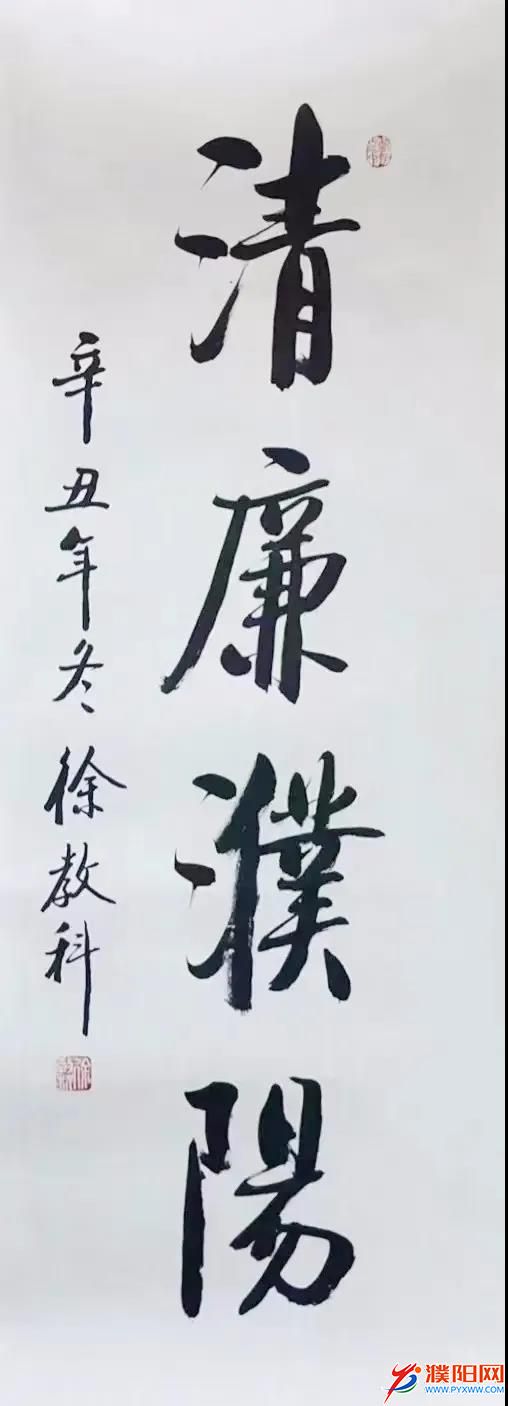 清廉濮陽
辛丑年冬徐教科
濮阳网
WWW.PYXWW.COM